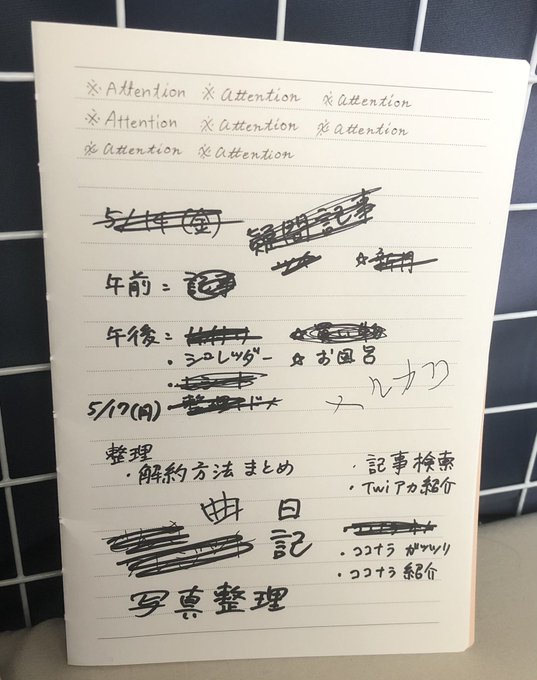 ※Attention ※Attention ※Attention
※Attention ※Attention ※Attention
※Attention ※Attention
5/14(金) 疑問記事
午前:
午後:
・シュレッダー ☆お風呂
5/17(月)
メルカリ
整理
・解約方法まとめ ・記事検索
・Twiアカ紹介
曲 日記
・ココナラ
・ココナラ紹介
写真整理